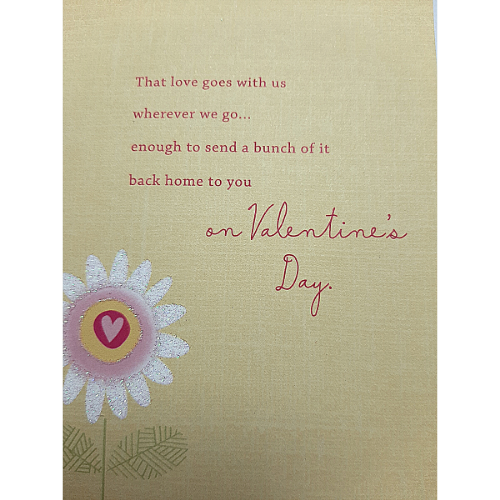 That love goes with us
wherever we go...
enough to send a bunch of it
back home to you
on Valentine's
Day.